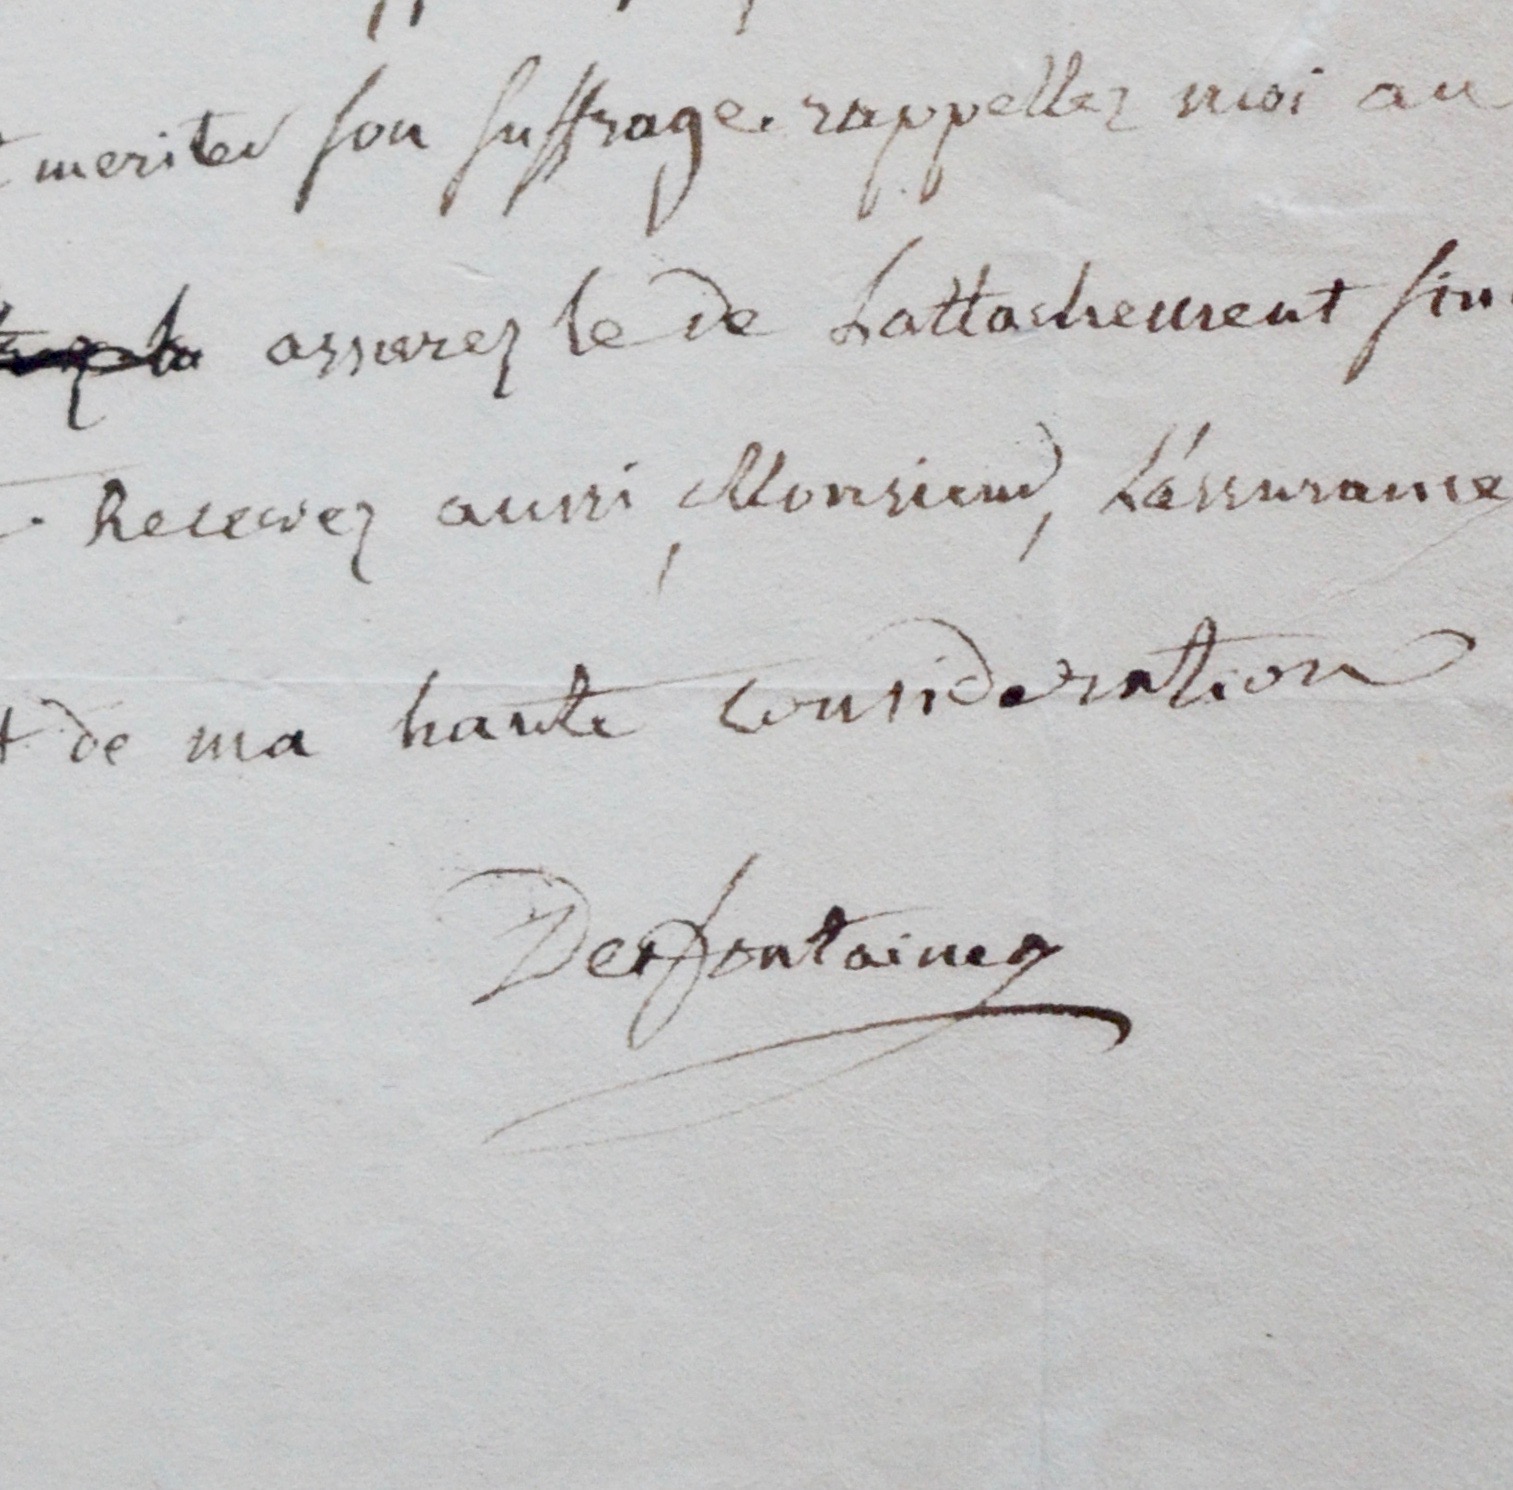 meriter son suffrage. rappellez moi au
assurez le de Lattachement
Recevez aussi, Monsieur, L'assurance
de ma haute consideration
Desfontaines